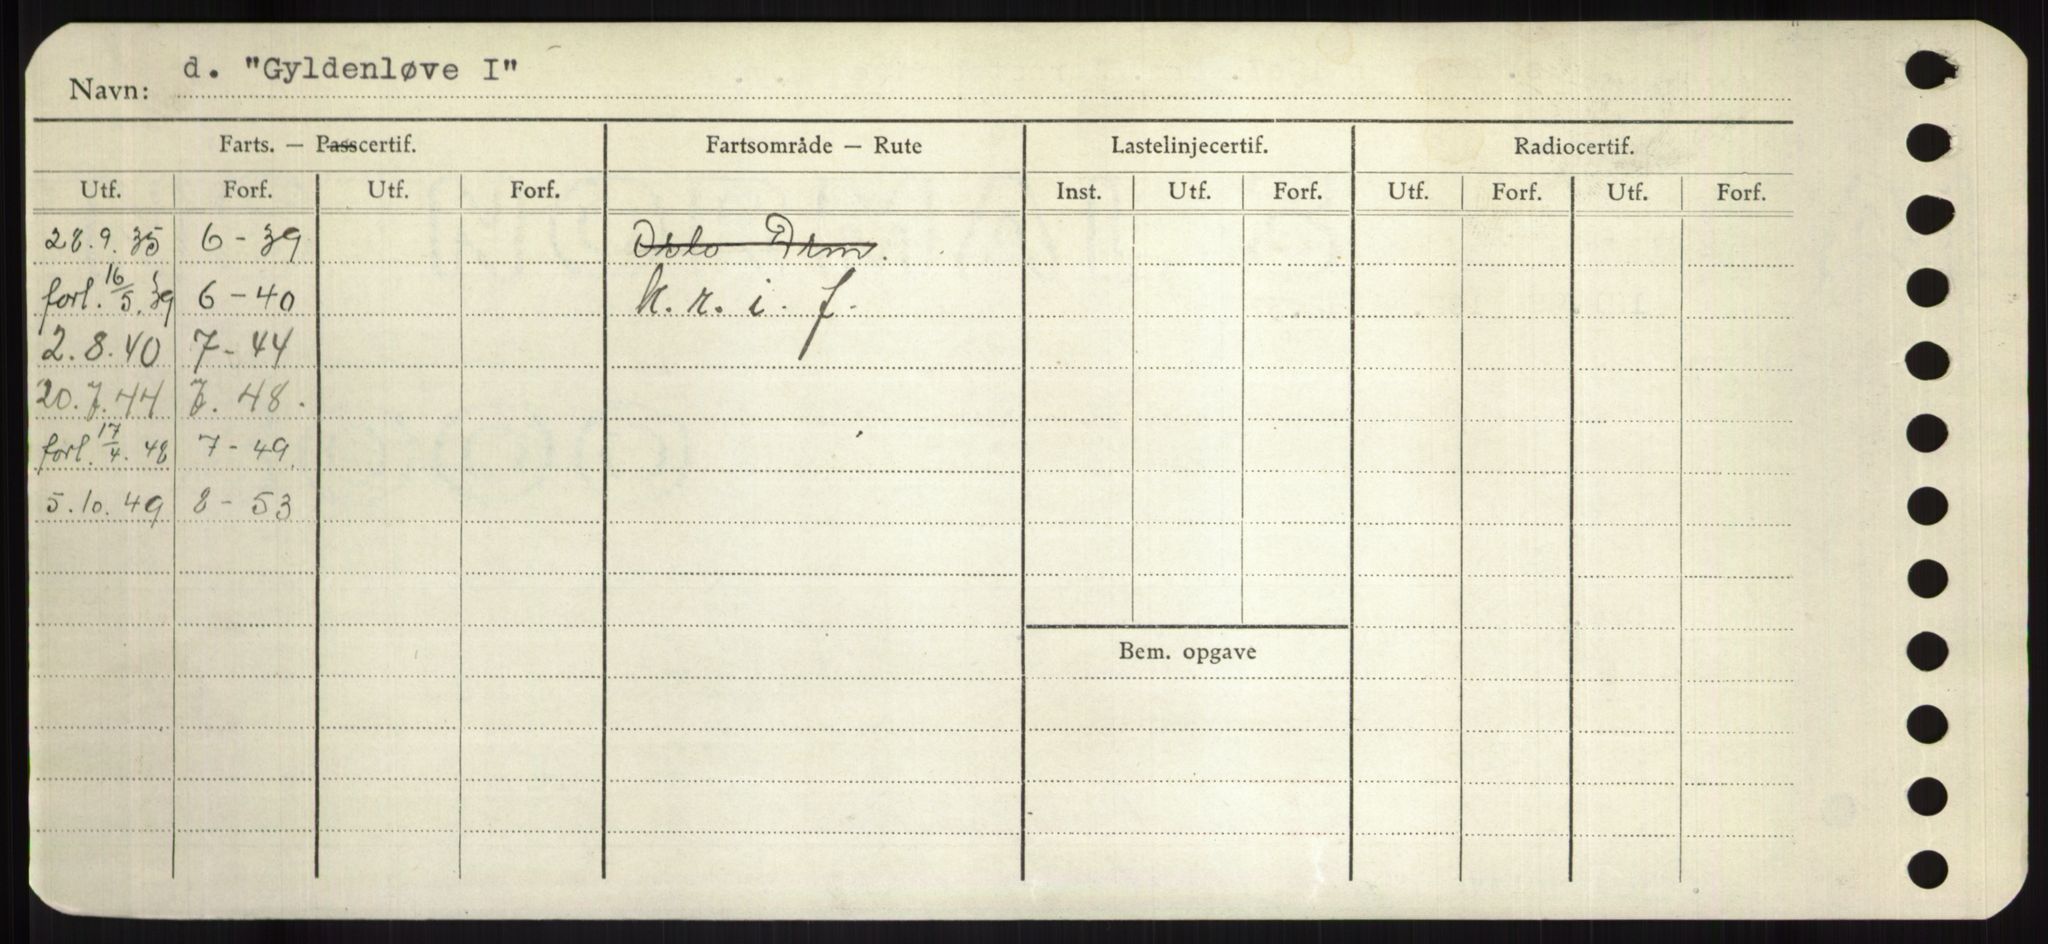 Navn: d. "Gyldenløve I"
Farts. — Passcertif. Fartsområde — Rute Lastelinjecertif. Radiocertif.
Utf. Forf. Utf. Forf. Inst. Utf. Forf. Utf. Forf. Utf. Forf.
28.9.35 6-39 Oslo Drm.
forl. 16/5.39 6-40 k.r.i.f.
2.8.40 7-44
20.7.44 7.48.
forl. 17/4.48 7-49
5.10.49 8-53
Bem. opgave